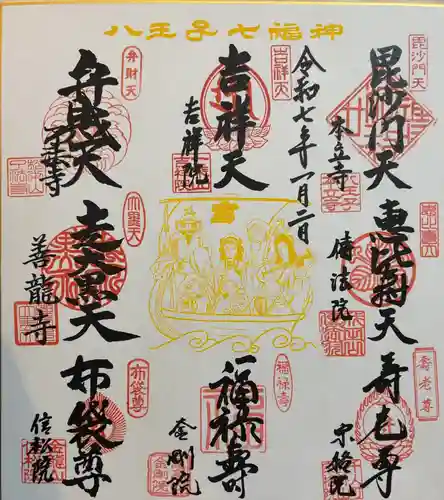 八王子七福神
毘沙門天
毘沙門天
本立寺
令和七年一月二日
吉祥天
吉祥天
吉祥院
弁財天
弁財天
了法寺
恵比寿天
伝法院
大黒天
志大黒天
善龍寺
寿老尊
寿老尊
宗格院
福禄寿
福禄寿
金剛院
布袋尊
布袋尊
信松院